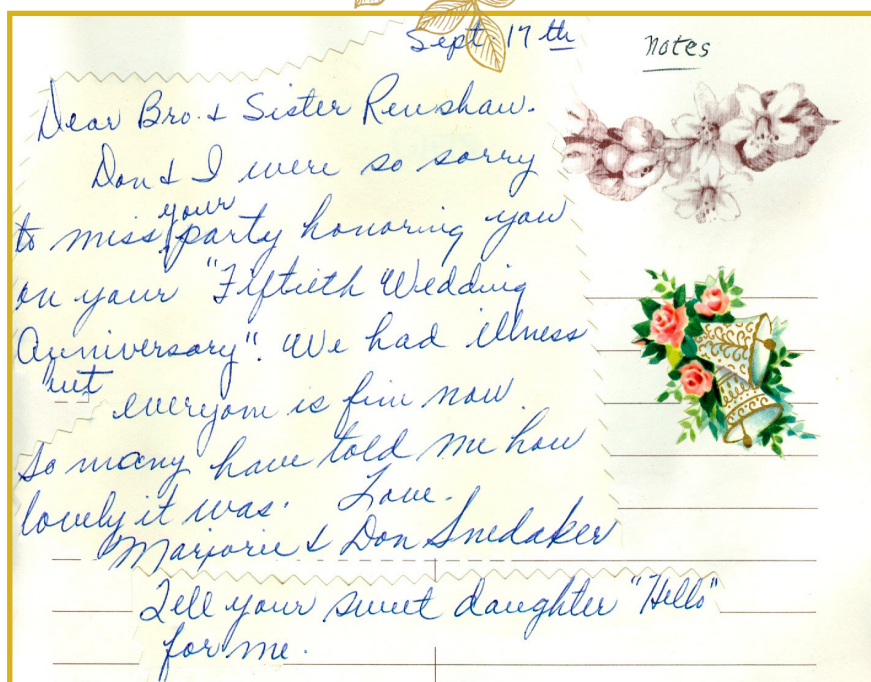 Sept. 17th
Notes
Dear Bro. & Sister Renshaw.
Don & I were so sorry
to miss your party honoring you
on your "Fiftieth Wedding
Anniversary". We had illness
but everyone is fine now.
So many have told me how
lovely it was. Love.
Marjorie & Don Snedaker
Tell your sweet daughter "Hello"
for me.